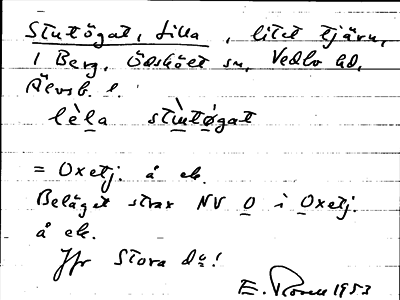 Stutögat, Lilla, litet tjärn,
i Berg, Ödskölt sn, Vedbo hd,
Älvsb. l.
lè̱la stù̱tø̱gat
= Oxetj. å ek.
Beläget strax NV O i Oxetj.
å ek.
Jfr Stora du!
E. Rosen 1953